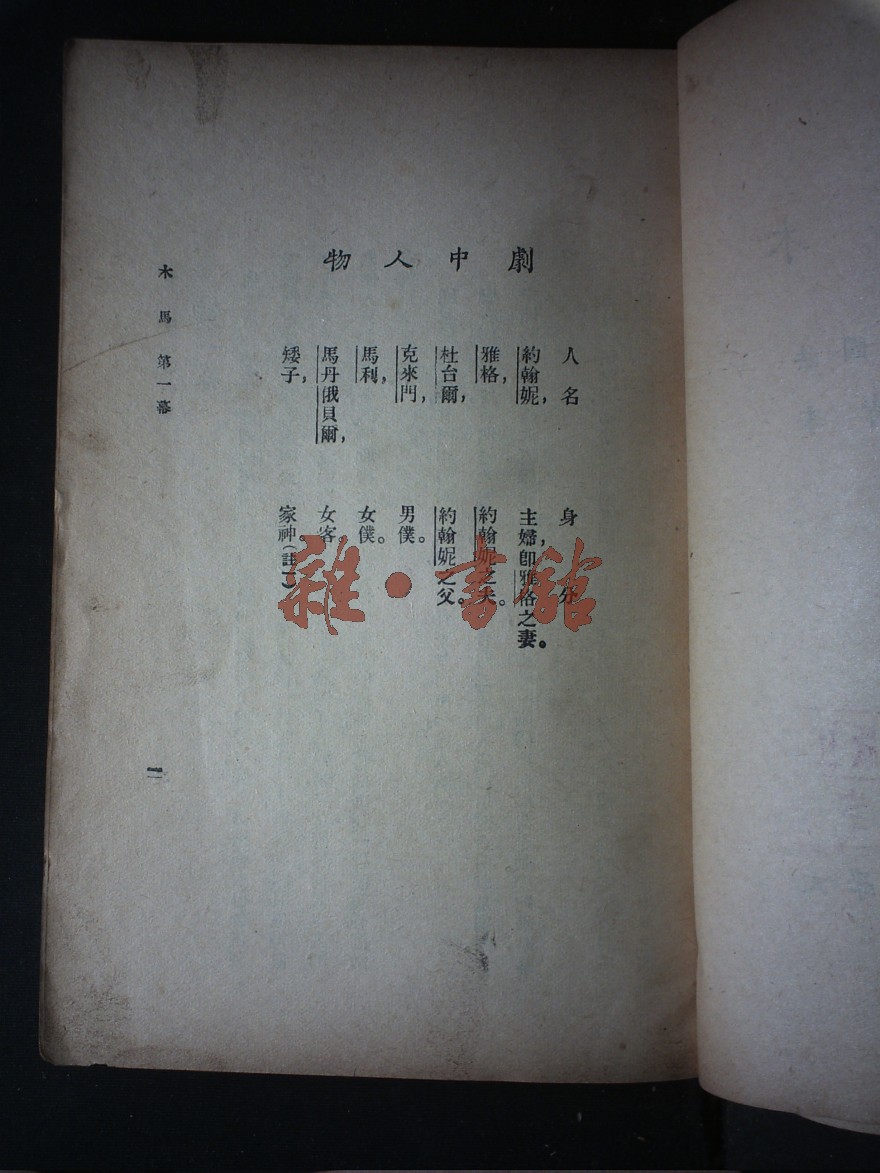 劇中人物
人名 身分
約翰妮, 主婦,卽雅格之妻。
雅格, 約翰妮之夫。
杜台爾, 約翰妮之父。
克來門, 男僕。
馬利, 女僕。
馬丹俄貝爾, 女客。
矮子, 家神。(註一)
木馬 第一幕
雜·書館